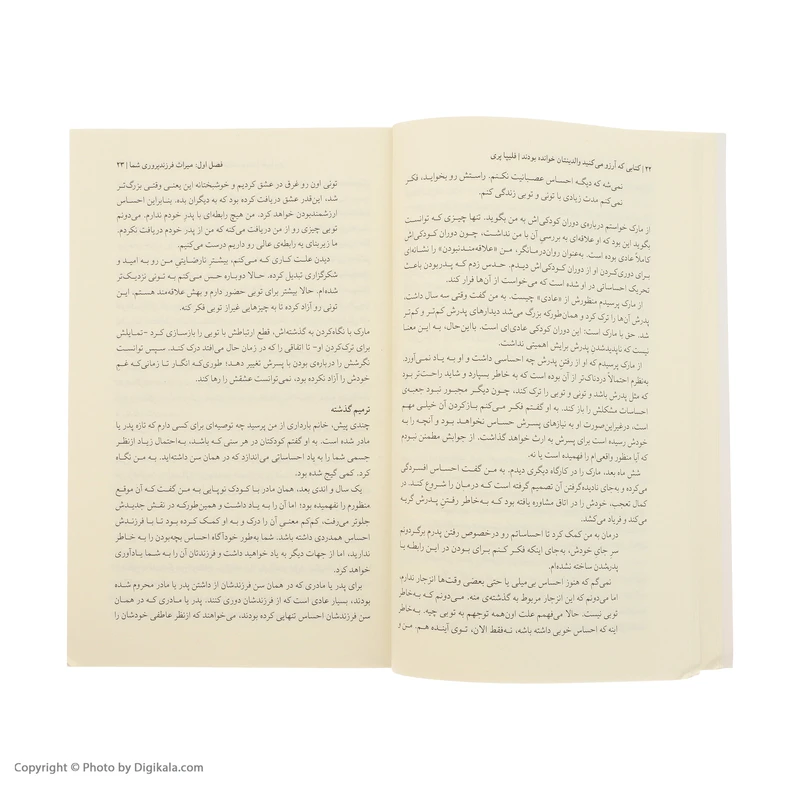 ۲۲ | کتابی که آرزو می‌کنید والدینتان خوانده بودند | فلیپا پری
نمی‌شه که دیگه احساس عصبانیت نکنم. راستش رو بخواید، فکر
نمی‌کنم مدت زیادی با تونی و توبی زندگی کنم.
از مارک خواستم درباره‌ی دوران کودکی‌اش به من بگوید. تنها چیزی که توانست
بگوید این بود که او علاقه‌ای به بررسیِ آن با من نداشت، چون دوران کودکی‌اش
کاملاً عادی بوده است. به‌عنوان روان‌درمانگر، من «علاقه‌مندنبودن» را نشانه‌ای
برای دوری‌کردن او از دوران کودکی‌اش دیدم. حدس زدم که پدربودن باعث
تحریک احساساتی در او شده است که می‌خواست از آن‌ها فرار کند.
از مارک پرسیدم منظورش از «عادی» چیست. به من گفت وقتی سه سال داشت،
پدرش آن‌ها را ترک کرد و همان‌طورکه بزرگ می‌شد دیدارهای پدرش کم‌تر و کم‌تر
شد. حق با مارک است: این دوران کودکی عادی‌ای است. بااین‌حال، به این معنا
نیست که ناپدیدشدن پدرش برایش اهمیتی نداشت.
از مارک پرسیدم که او از رفتن پدرش چه احساسی داشت و او به یاد نمی‌آورد.
به‌نظرم احتمالاً دردناک‌تر از آن بوده است که به خاطر بسپارد و شاید راحت‌تر بود
که مثل پدرش باشد و تونی و توبی را ترک کند، چون دیگر مجبور نبود جعبه‌ی
احساسات مشکلش را باز کند. به او گفتم فکر می‌کنم بازکردن آن خیلی مهم
است، درغیراین‌صورت او به نیازهای پسرش حساس نخواهد بود و آنچه را به
خودش رسیده است برای پسرش به ارث خواهد گذاشت. از جوابش مطمئن نبودم
که آیا منظور واقعی‌ام را فهمیده است یا نه.
شش ماه بعد، مارک را در کارگاه دیگری دیدم. به من گفت احساس افسردگی
می‌کرده و به‌جای نادیده‌گرفتن آن تصمیم گرفته است که درمان را شروع کند. در
کمال تعجب، خودش را در اتاق مشاوره یافته بود که به‌خاطر رفتن پدرش گریه
می‌کند و فریاد می‌کشد.
درمان به من کمک کرد تا احساساتم رو درخصوص رفتن پدرم برگردونم
سر جای خودش، به‌جای اینکه فکر کنم برای بودن در این رابطه یا
پدرشدن ساخته نشده‌ام.
نمی‌گم که هنوز احساس بی‌میلی یا حتی بعضی وقت‌ها انزجار ندارم،
اما می‌دونم که این انزجار مربوط به گذشته‌ی منه. می‌دونم که به‌خاطر
توبی نیست. حالا می‌فهمم علت اون‌همه توجهم به توبی چیه. به‌خاطر
اینه که احساس خوبی داشته باشه، نه‌فقط الان، توی آینده هم. من و
فصل اول: میراث فرزندپروری شما | ۲۳
تونی اون رو غرق در عشق کردیم و خوشبختانه این یعنی وقتی بزرگ‌تر
شد، این‌قدر عشق دریافت کرده بود که به دیگران بده. بنابراین احساس
ارزشمندبودن خواهد کرد. من هیچ رابطه‌ای با پدر خودم ندارم. می‌دونم
توبی چیزی رو از من دریافت می‌کنه که من از پدر خودم دریافت نکردم.
ما زیربنای یه رابطه‌ی عالی رو داریم درست می‌کنیم.
دیدن علت کاری که می‌کنم، بیشتر نارضایتی من رو به امید و
شکرگزاری تبدیل کرده. حالا دوباره حس می‌کنم به تونی نزدیک‌تر
شده‌ام. حالا بیشتر برای توبی حضور دارم و بهش علاقه‌مند هستم. این،
تونی رو آزاد کرده تا به چیزهایی غیراز توبی فکر کنه.
مارک با نگاه‌کردن به گذشته‌اش، قطع ارتباطش با توبی را بازسازی کرد -تمایلش
برای ترک‌کردن او- تا اتفاقی را که در زمان حال می‌افتد درک کند. سپس توانست
نگرشش را درباره‌ی بودن با پسرش تغییر دهد؛ طوری‌که انگار تا زمانی‌که غم
خودش را آزاد نکرده بود، نمی‌توانست عشقش را رها کند.
ترمیم گذشته
چندی پیش، خانم بارداری از من پرسید چه توصیه‌ای برای کسی دارم که تازه پدر یا
مادر شده است. به او گفتم کودکتان در هر سنی که باشد، به‌احتمال زیاد ازنظر
جسمی شما را به یاد احساساتی می‌اندازد که در همان سن داشته‌اید. به من نگاه
کرد. کمی گیج شده بود.
یک سال و اندی بعد، همان مادر با کودک نوپایی به من گفت که آن موقع
منظورم را نفهمیده بود؛ اما آن را به یاد داشت و همین‌طورکه در نقش جدیدش
جلوتر می‌رفت، کم‌کم معنی آن را درک و به او کمک کرده بود تا با فرزندش
احساس همدردی داشته باشد. شما به‌طور خودآگاه احساس بچه‌بودن را به خاطر
ندارید، اما از جهات دیگر به یاد خواهید داشت و فرزندتان آن را به شما یادآوری
خواهد کرد.
برای پدر یا مادری که در همان سن فرزندشان از داشتن پدر یا مادر محروم شده
بودند، بسیار عادی است که از فرزندشان دوری کنند. پدر یا مادری که در همان
سن فرزندشان احساس تنهایی کرده بودند، می‌خواهند که ازنظر عاطفی خودشان را
Copyright © | Photo by Digikala.com